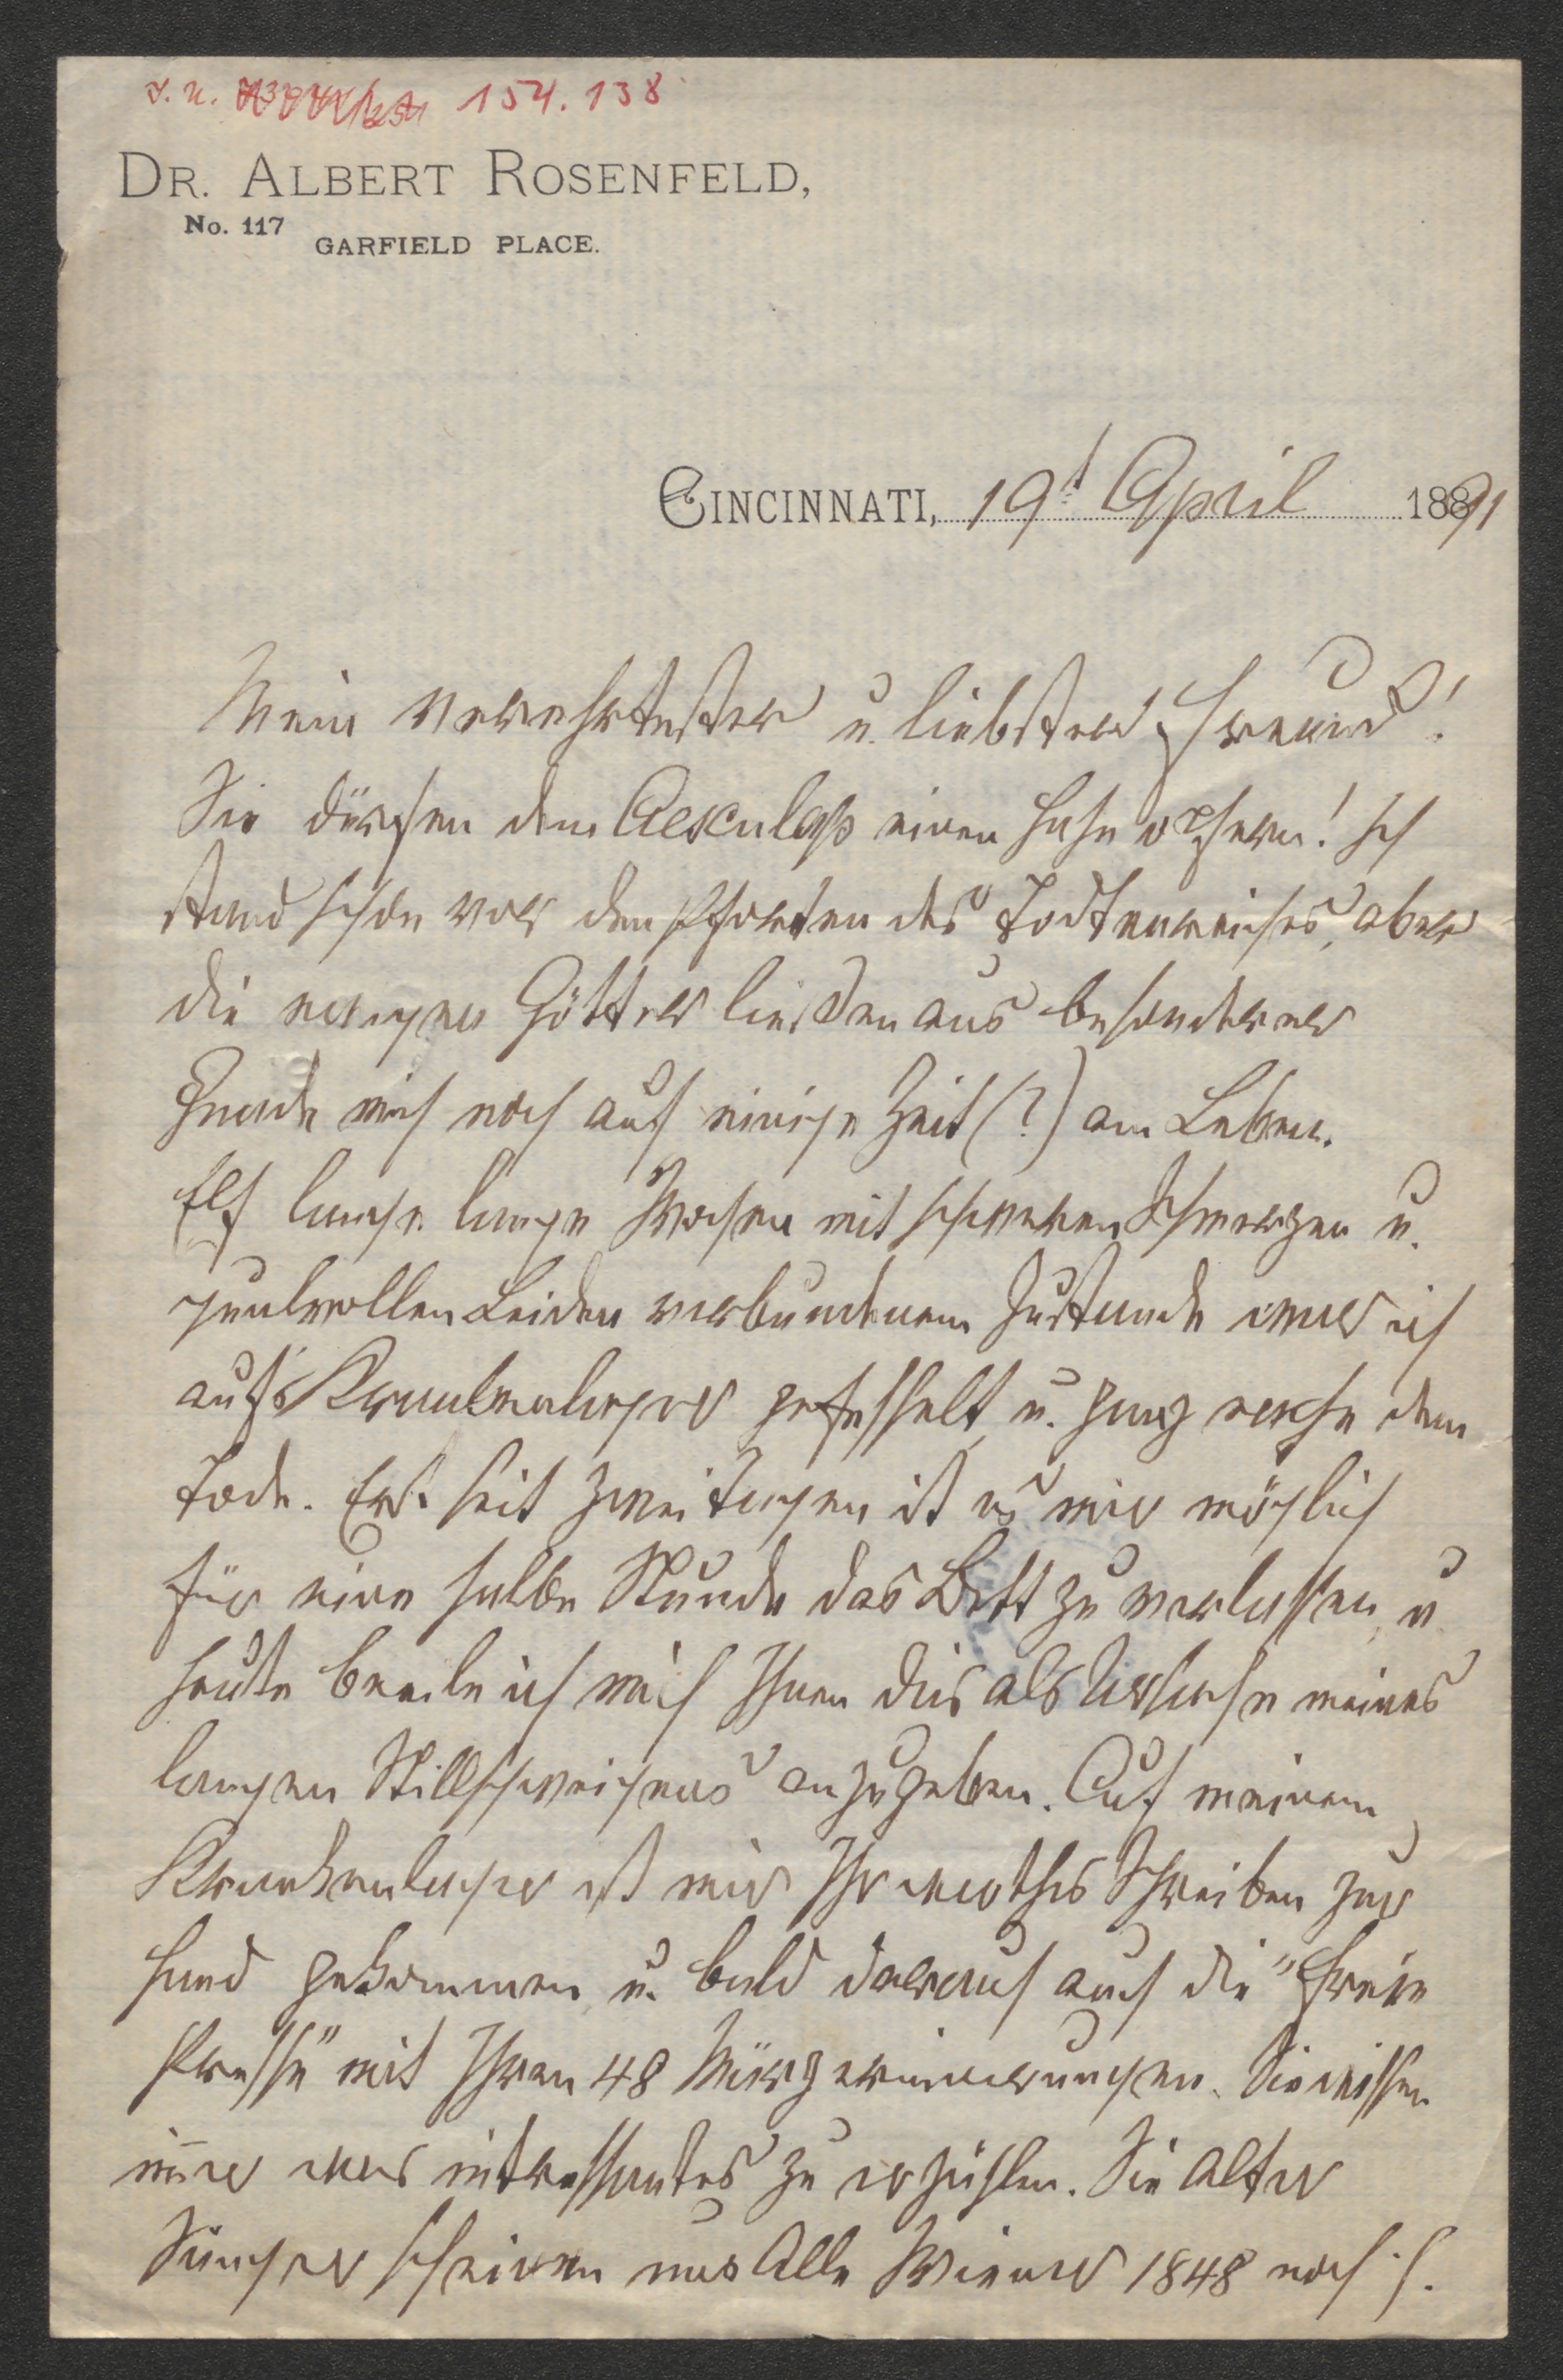 I. N. 154.138
DR. ALBERT ROSENFELD,
No. 117
GARFIELD PLACE.
CINCINNATI, 19t April 1891
Mein verehrtester u. liebster Freund!
Sie dürfen dem Aesculap einen Hahn opfern! Ich
stand schon vor den Pforten des Todtenreiches, aber
die ewigen Götter ließen aus besonderer
Gnade mich noch auf einige Zeit (?) am Leben.
Elf lange lange Wochen mit schweren Schmerzen u.
qualvollen Leiden verbundenem Zustande war ich
aufs Krankenlager gefesselt, u. ganz nahe dem
Tode. Erst seit zwei Tagen ist es mir möglich
für eine halbe Stunde das Bett zu verlassen, u
heute beeile ich mich Ihnen dies als Ursache meines
langen Stillschweigens anzugeben. Auf meinem
Krankenlager ist mir Ihr werthes Schreiben zur
Hand gekommen, u. bald darauf auch die "Freie
Presse" mit Ihren 48 Märzerinnerungen. Sie wissen
im̄er was intressantes zu erzählen. Sie alter
Sünger scheinen uns Alle Wiener 1848